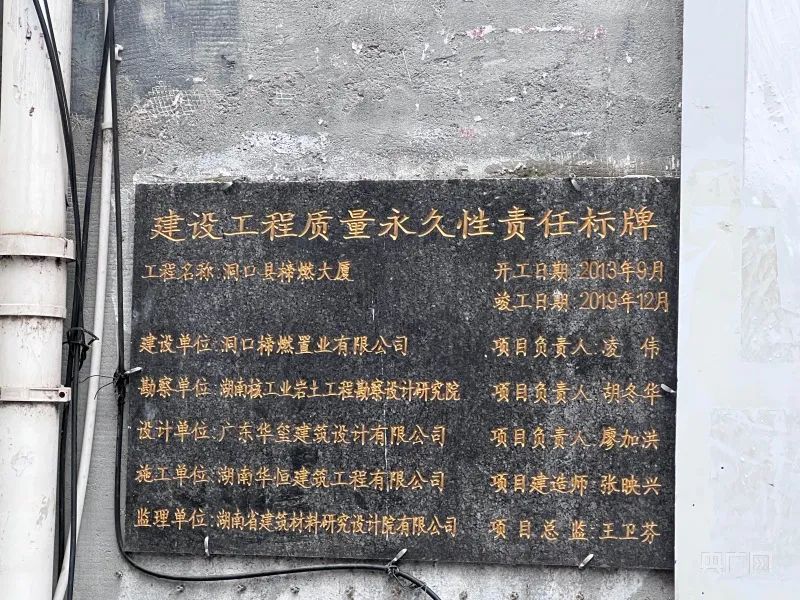 建设工程质量永久性责任标牌
工程名称:洞口县棓燃大厦 开工日期:2013年9月
竣工日期:2019年12月
建设单位:洞口棓燃置业有限公司 项目负责人:凌 伟
勘察单位:湖南核工业岩土工程勘察设计研究院 项目负责人:胡冬华
设计单位:广东华玺建筑设计有限公司 项目负责人:廖加洪
施工单位:湖南华恒建筑工程有限公司 项目建造师:张映兴
监理单位:湖南省建筑材料研究设计院有限公司 项目总监:王卫芬
央广网